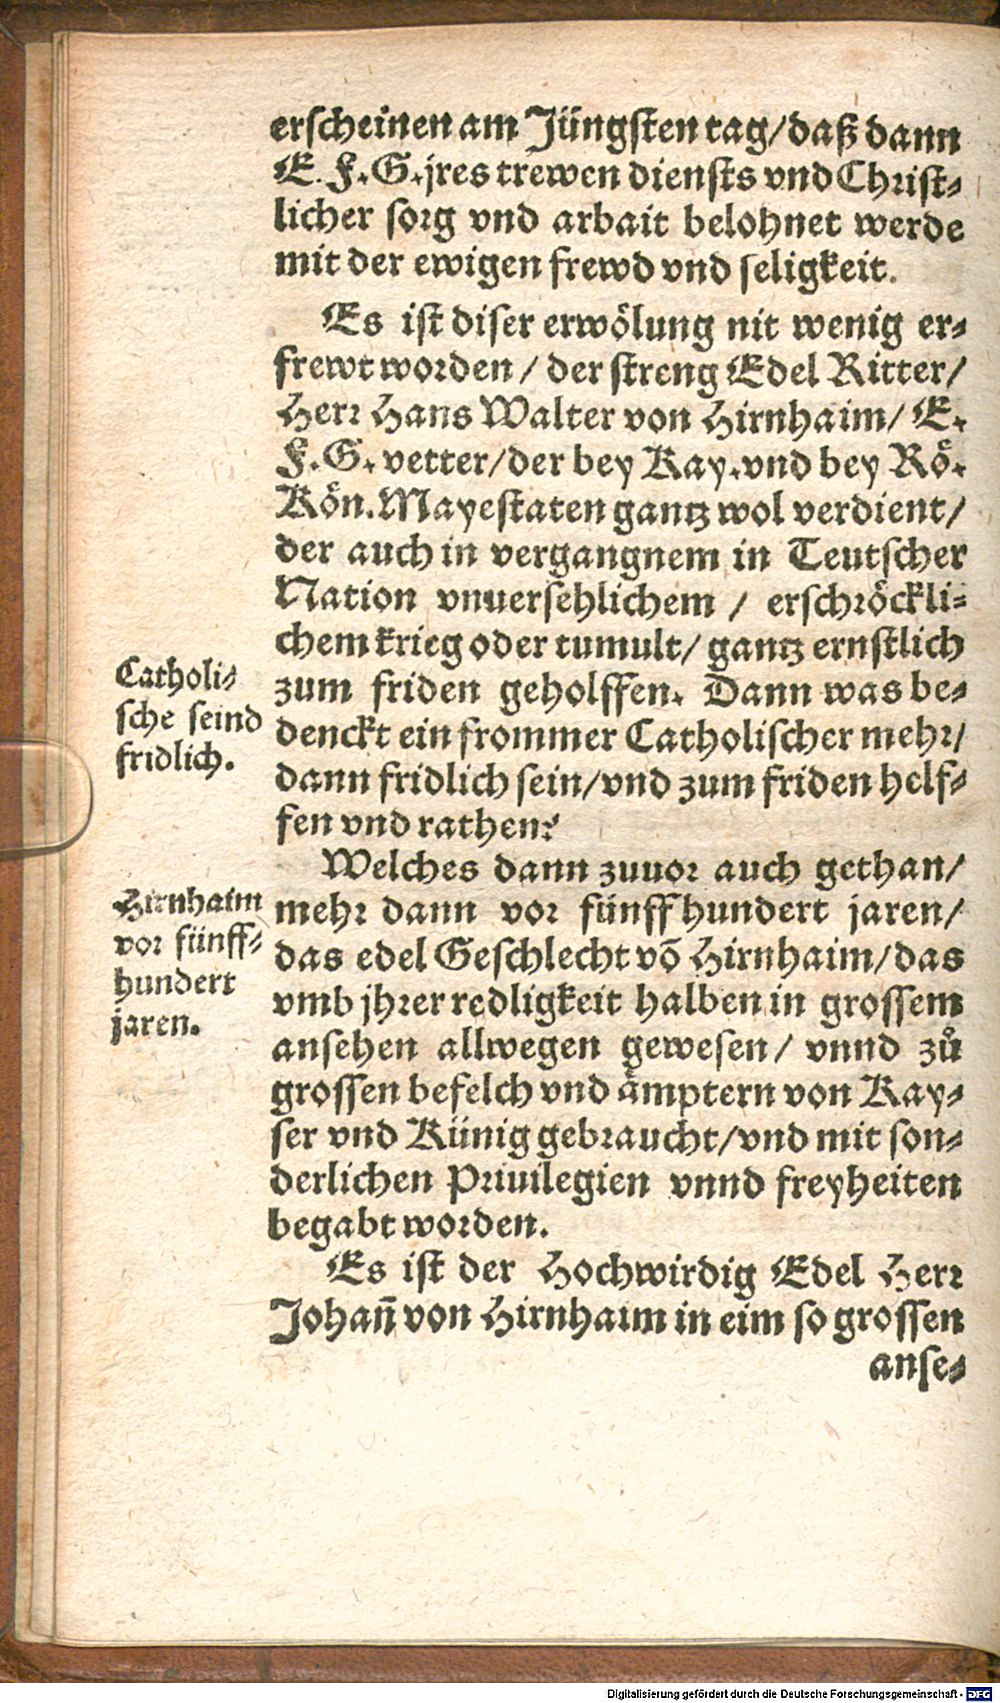 erscheinen am Jüngsten tag/ daß dann
E. F. G. jres trewen diensts vnd Christ-
licher sorg vnd arbait belohnet werde
mit der ewigen frewd vnd seligkeit.
Es ist diser erwölung nit wenig er-
frewt worden / der streng Edel Ritter/
Herr Hans Walter von Hirnhaim/ E.
F. G. vetter/ der bey Kay. vnd bey Rö.
Kön. Mayestaten gantz wol verdient/
der auch in vergangnem in Teutscher
Nation vnuersehlichem / erschröckli-
chem krieg oder tumult/ gantz ernstlich
zum friden geholffen. Dann was be-
denckt ein frommer Catholischer mehr/
dann fridlich sein/ vnd zum friden helf-
fen vnd rathen?
Catholi-
sche seind
fridlich.
Welches dann zuuor auch gethan/
mehr dann vor fünff hundert jaren/
das edel Geschlecht vō Hirnhaim/ das
vmb jhrer redligkeit halben in grossem
ansehen allwegen gewesen/ vnnd zů
grossen befelch vnd ämptern von Kay-
ser vnd Künig gebraucht/ vnd mit son-
derlichen Priuilegien vnnd freyheiten
begabt worden.
Hirnhaim
vor fünff-
hundert
jaren.
Es ist der Hochwirdig Edel Herr
Johan̄ von Hirnhaim in eim so grossen
anse-
Digitalisierung gefördert durch die Deutsche Forschungsgemeinschaft - DFG